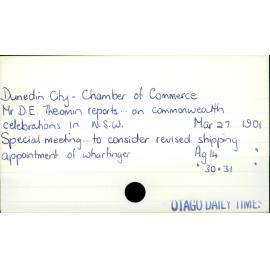 Dunedin City - Chamber of Commerce
Mr D.E. Theomin reports... on commonwealth
celebrations in N.S.W. Mar 27 1901
Special meeting... to consider revised shipping
appointment of wharfinger Ag 14 "
" 30.31 "
OTAGO DAILY TIMES